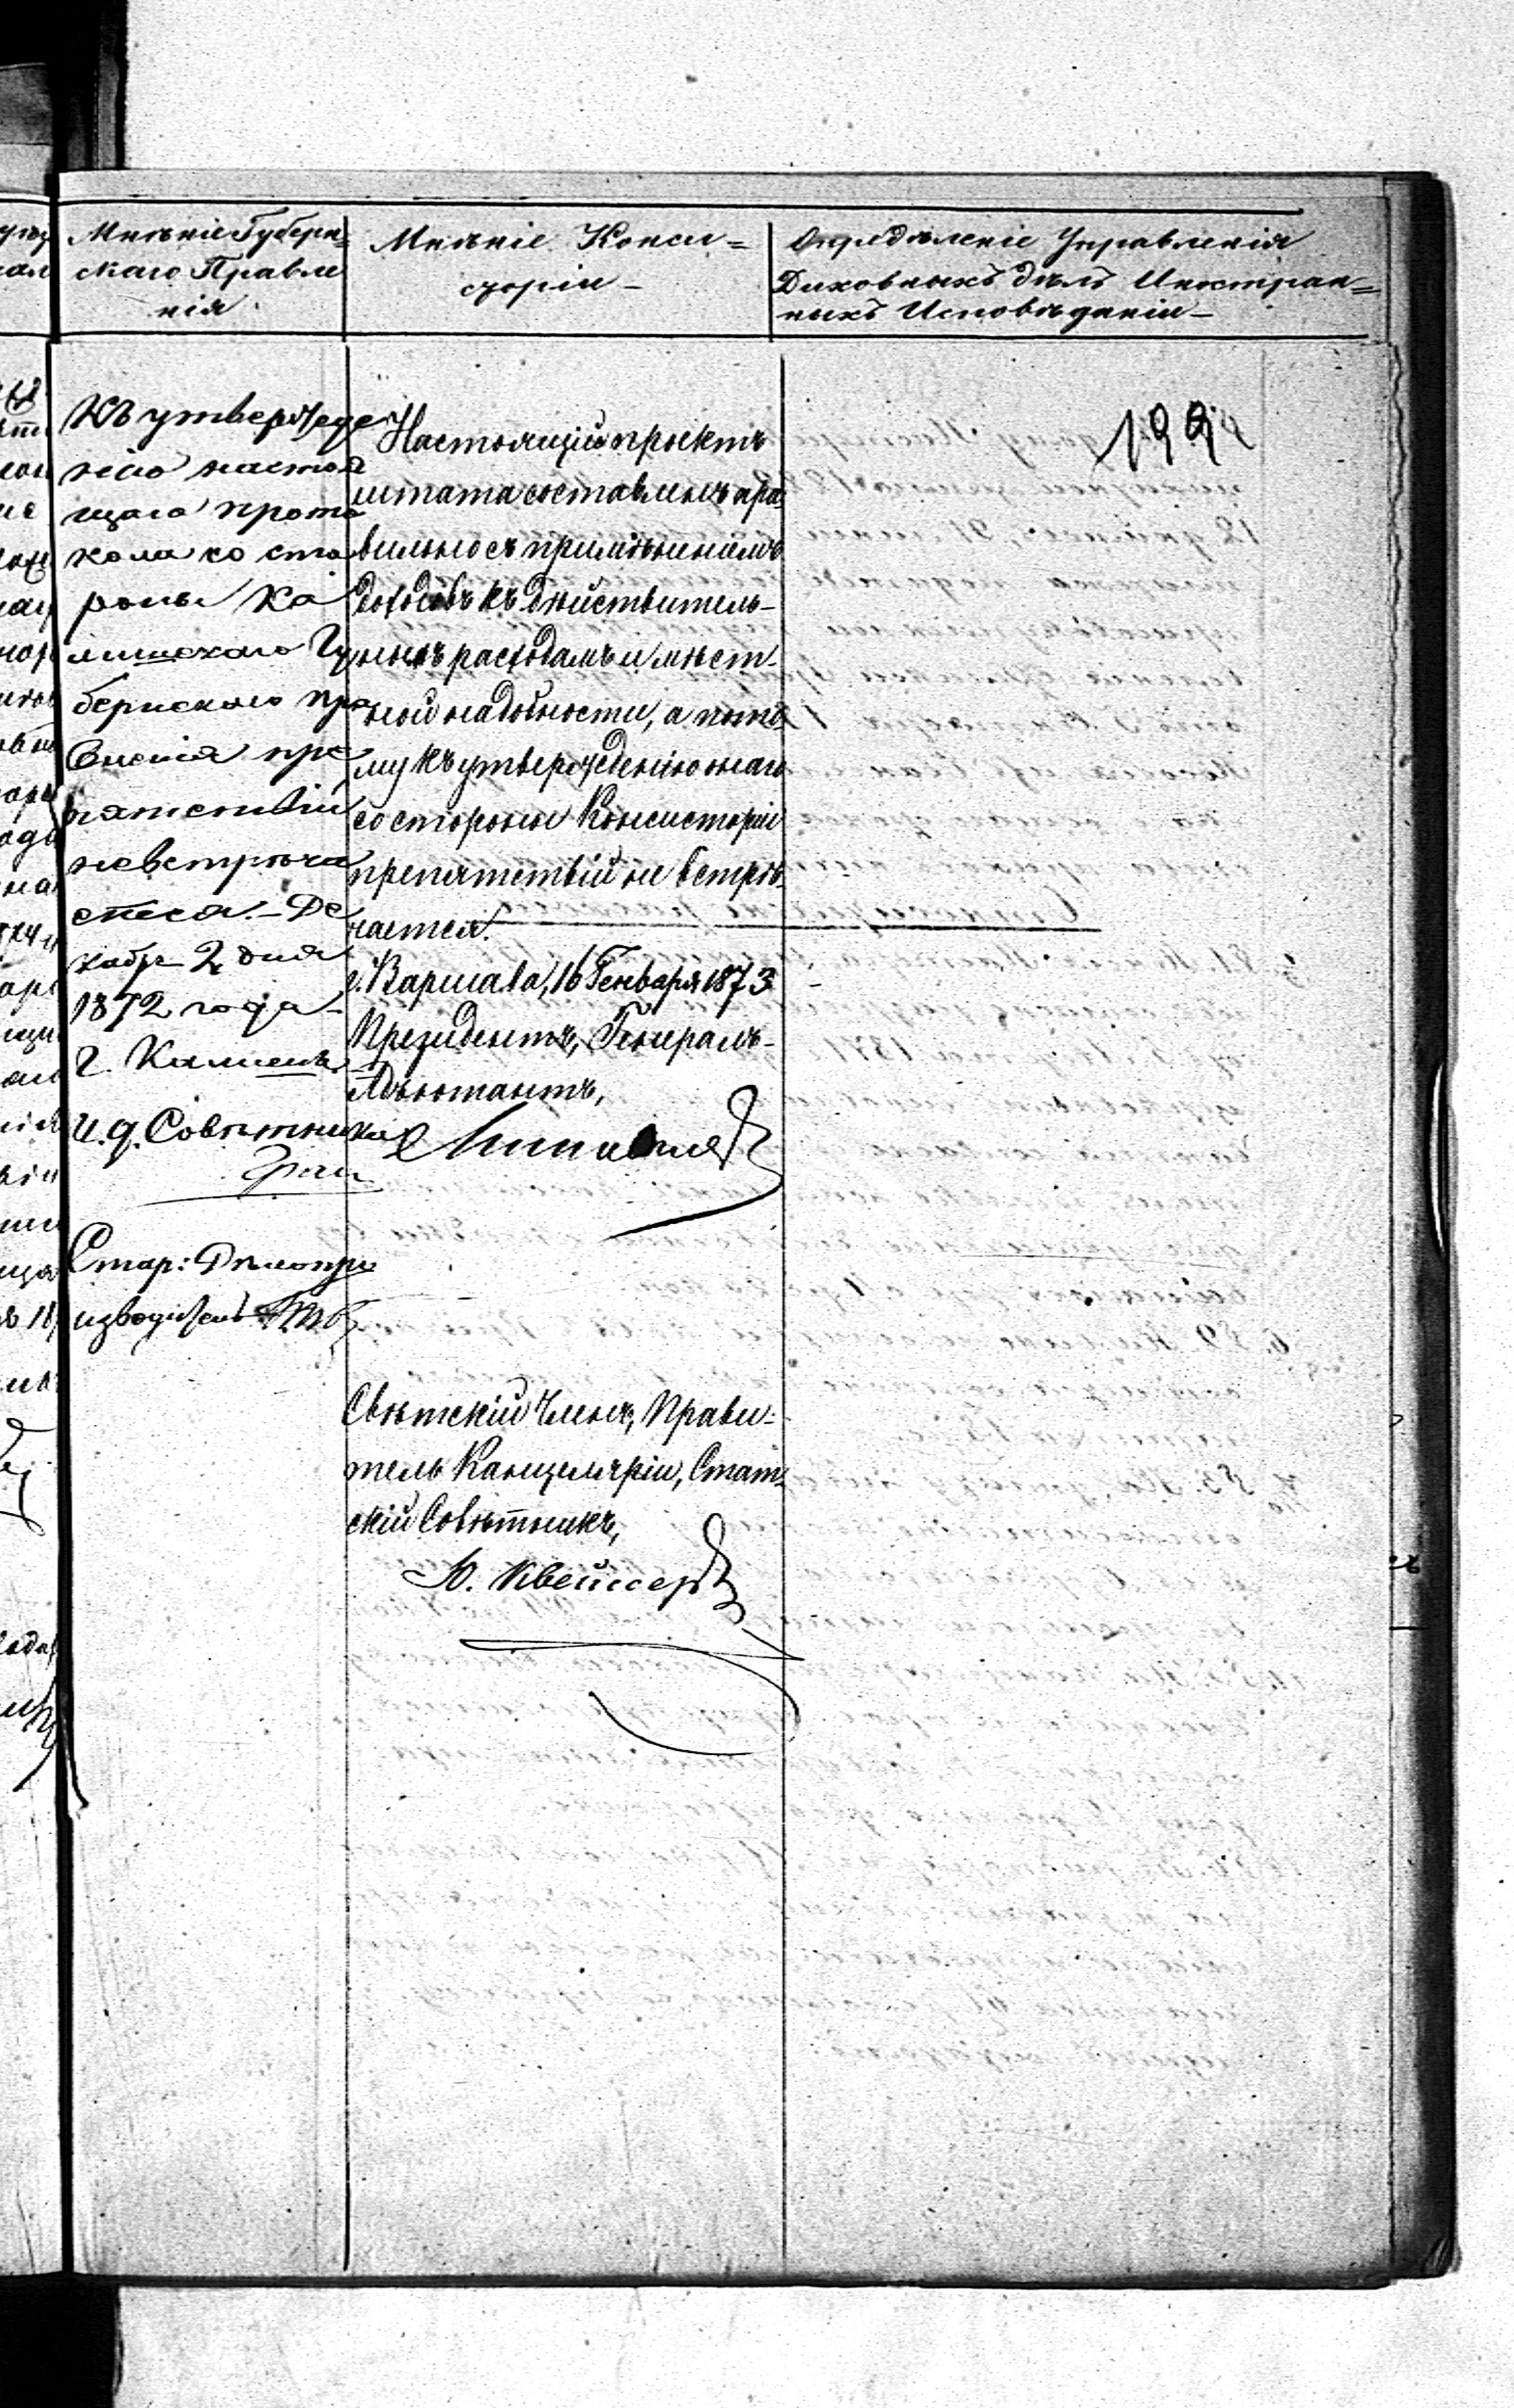 Мнѣніе Губерн=
скаго Правле
нія.
Мнѣніе Конси=
сторіи –
Опредѣленіе Управленія
Духовныхъ дѣлъ Иностран=
ныхъ Исповѣданій –
Къ утвержде
нію настоя
щаго прото
кола со сто
роны Ка
лишскаго Гу
бернскаго пра
вленія пре
пятствій
невстрѣча
ется. – Де
кабр 2 дня
1872 года –
г. Калишъ.
И. д. Совѣтника
Стар: Дѣлопро
изводитель
Настоящій проектъ
штата составленъ пра
вильно съ примѣненіемъ
доходовъ къ дѣйствитель-
нымъ расходамъ и мѣст-
ной надобности, а пото
му къ утвержденію онаго
со стороны Консисторіи
препятствій не встрѣ
чается.
г. Варшава, 16 Генваря 1873
Президентъ, Генералъ-
Адъютантъ,
Свѣтскій Членъ, Прави=
тель Канцеляріи, Стат
скій Совѣтникъ,
199